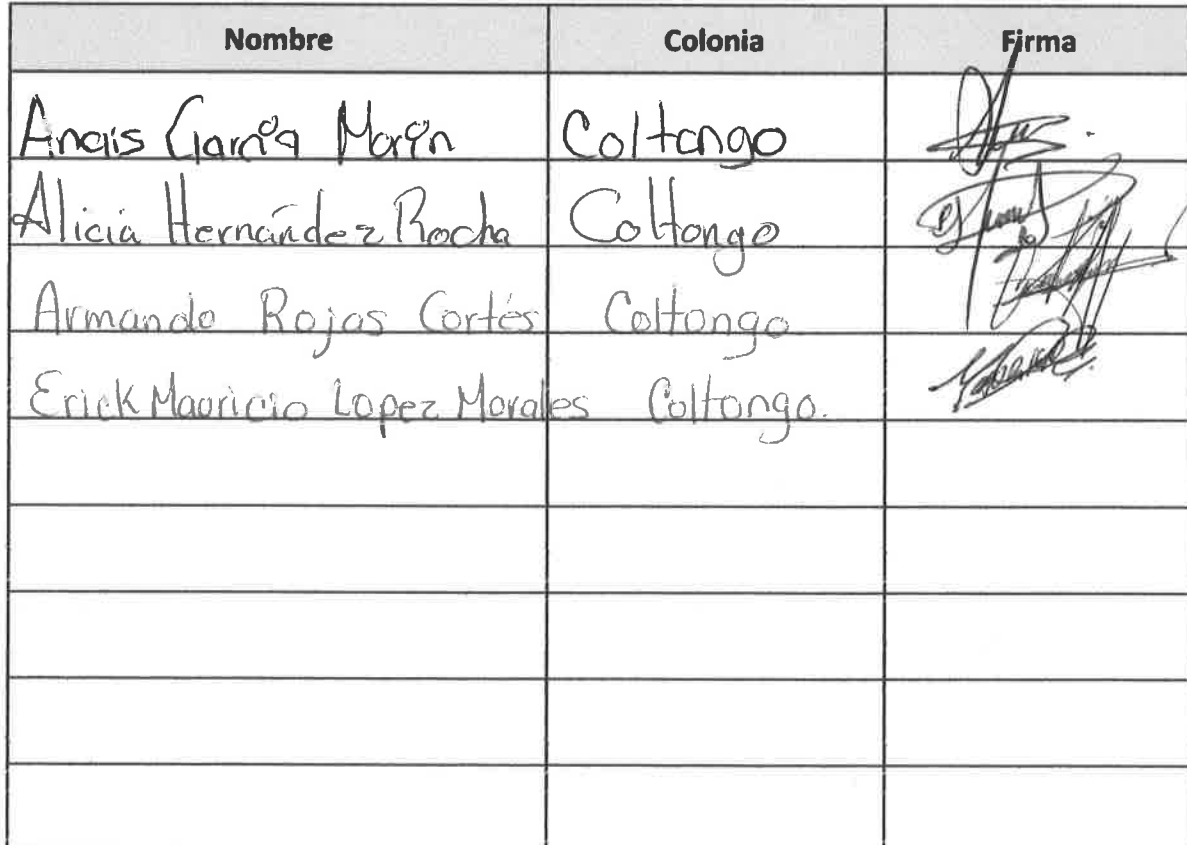 Nombre Colonia Firma
Anais García Marín Coltongo
Alicia Hernández Rocha Coltongo
Armando Rojas Cortés Coltongo
Erick Mauricio Lopez Morales Coltongo.